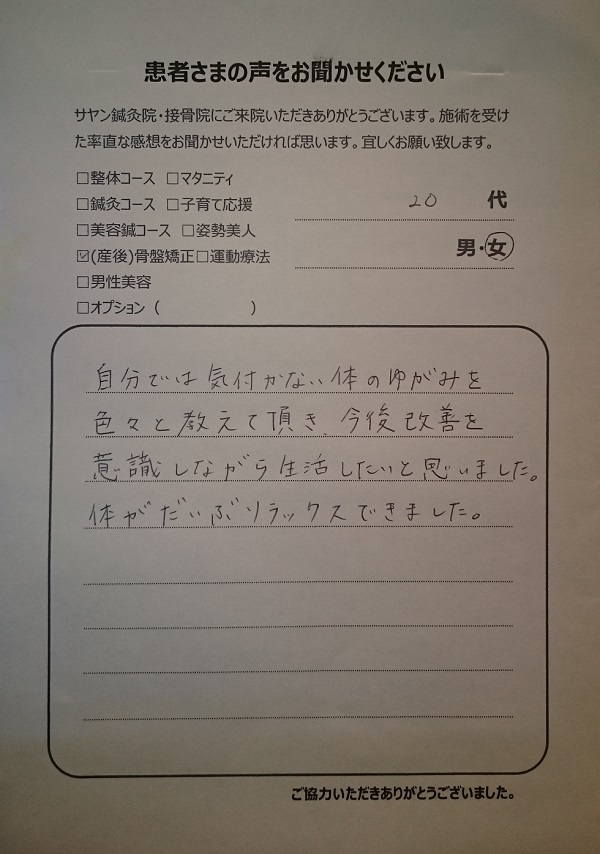 患者さまの声をお聞かせください
サヤン鍼灸院・接骨院にご来院いただきありがとうございます。施術を受け
た率直な感想をお聞かせいただければ思います。宜しくお願い致します。
□整体コース □マタニティ
□鍼灸コース □子育て応援
20 代
□美容鍼コース □姿勢美人
男・女
☑(産後)骨盤矯正□運動療法
□男性美容
□オプション (　　　　　　)
自分では気付かない体のゆがみを
色々と教えて頂き、今後改善を
意識しながら生活したいと思いました。
体がだいぶリラックスできました。
ご協力いただきありがとうございました。